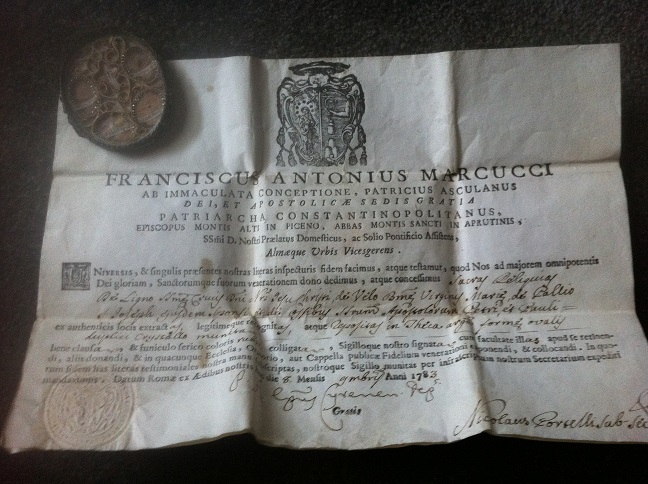 FRANCISCUS ANTONIUS MARCUCCI
AB IMMACULATA CONCEPTIONE, PATRICIUS ASCULANUS
DEI, ET APOSTOLICÆ SEDIS GRATIA
PATRIARCHA CONSTANTINOPOLITANUS,
EPISCOPUS MONTIS ALTI IN PICENO, ABBAS MONTIS SANCTI IN APRUTINIS,
SSmi D. Nostri Prælatus Domesticus, ac Solio Pontificio Assistens,
Almæque Urbis Vicesgerens.
UNIVERSIS, & singulis præsentes nostras literas inspecturis fidem facimus, atque testamur, quod Nos ad majorem omnipotentis
Dei gloriam, Sanctorumque suorum venerationem dono dedimus, atque concessimus Sacras Reliquias
De Ligno Ssmæ Crucis Dni Nri Jesu Christi, de Velo Bmæ Virginis Mariæ, de Pallio
S. Joseph ejusdem Sponsi ossibus Ssrum Apostolorum Petri, et Pauli
ex authenticis locis extractas, legitimeque recognitas, atque repositas in Theca formæ ovalis
crystallo munita
bene clausa, & funiculo serico coloris colligata, Sigilloque nostro signata cum facultate illas apud se retinendi, aliis donandi, & in quacumque Ecclesia, aut Cappella publicæ Fidelium venerationi exponendi, & collocandi. In quorum fidem has literas testimoniales nostra manu subscriptas, nostroque Sigillo munitas per infrascriptum nostrum Secretarium expediri
mandavimus. Datum Romæ ex Ædibus nostris die 8. Mensis 9mbris Anni 1783
Cyrenen.
Gratis
Nicolaus Porselli Sub-Sec